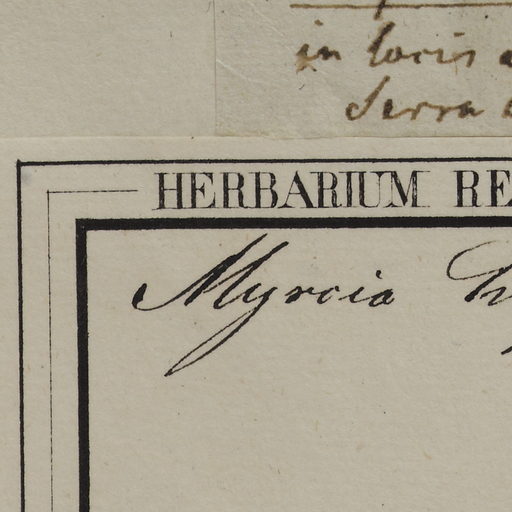 in locis
Serra
HERBARIUM RE
Myrcia